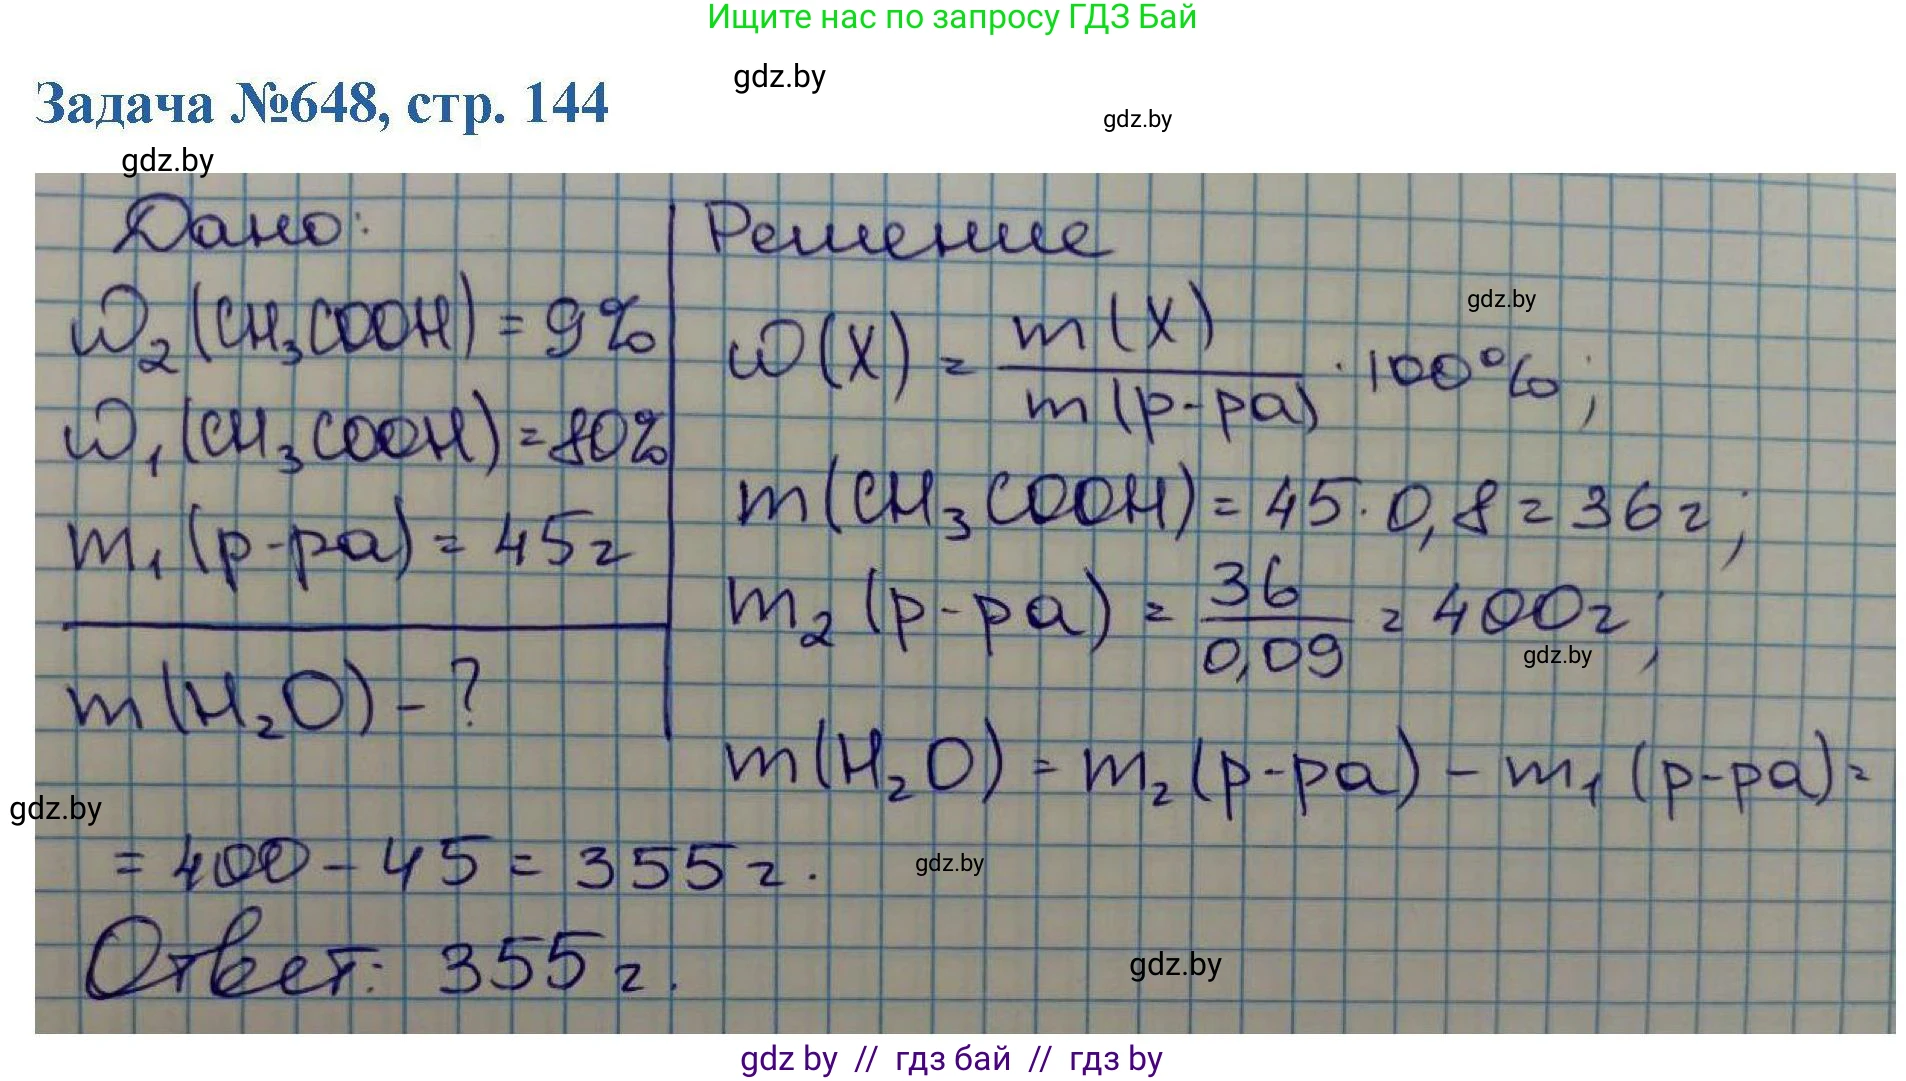 Ищите нас по запросу ГДЗ Бай
gdz.by
Задача №648, стр. 144
gdz.by
gdz.by
Дано:
ω₂(CH₃COOH) = 9%
ω₁(CH₃COOH) = 80%
m₁(р-ра) = 45г
m(H₂O) - ?
Решение
gdz.by
ω(X) = m(X) / m(р-ра) · 100%;
m(CH₃COOH) = 45 · 0,8 = 36г;
m₂(р-ра) = 36 / 0,09 = 400г;
gdz.by
m(H₂O) = m₂(р-ра) - m₁(р-ра) =
gdz.by
= 400 - 45 = 355г.
gdz.by
Ответ: 355г.
gdz.by
gdz by // гдз бай // гдз by